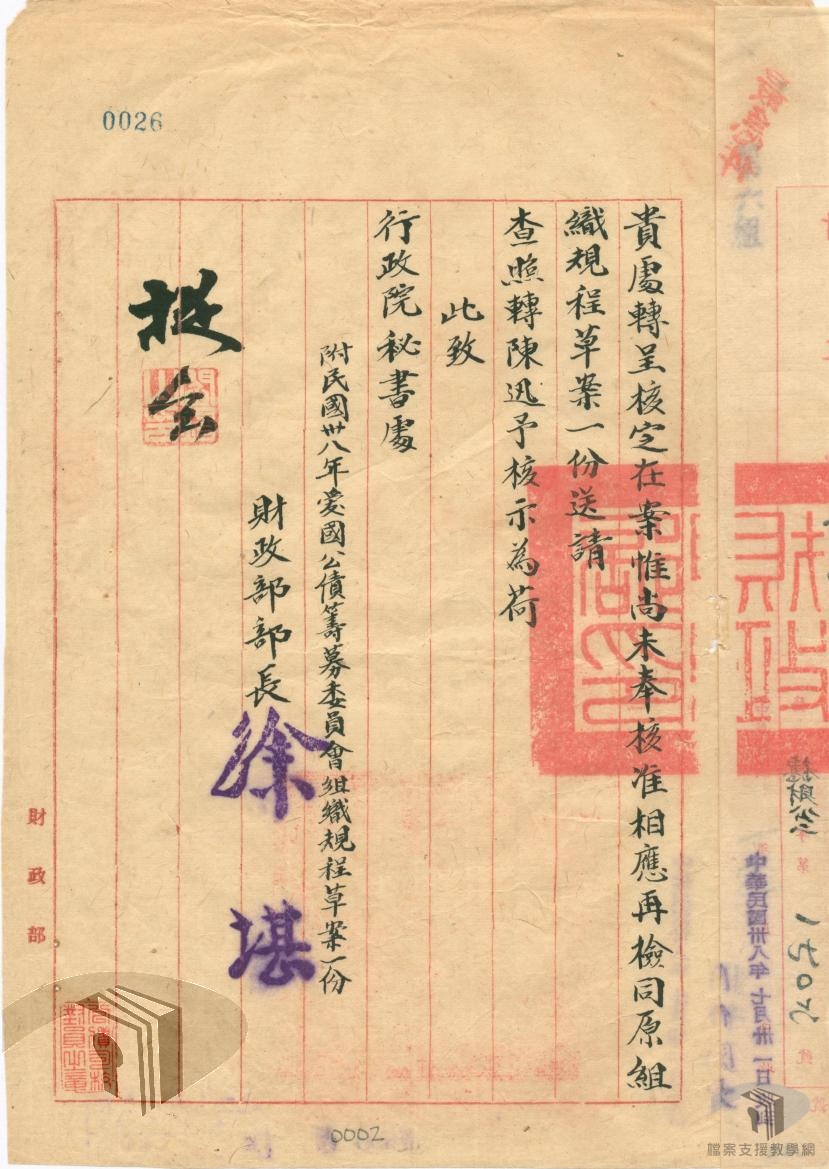 0026
貴處轉呈核定在案惟尚未奉核准相應再檢同原組
織規程草案一份送請
查照轉陳迅予核示為荷
此致
行政院秘書處
附民國卅八年愛國公債籌募委員會組織規程草案一份
財政部部長 徐堪
財政部
中華民國卅八年七月卅一日
0002
檔案支援教學網